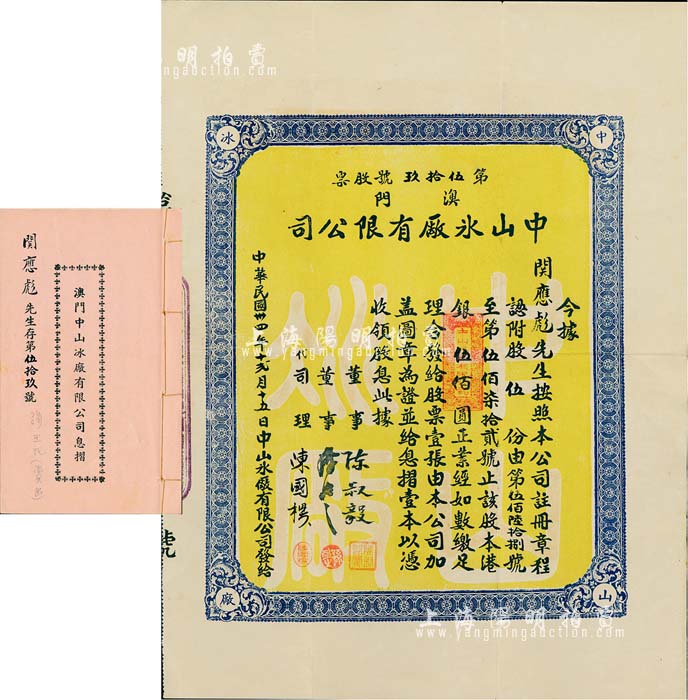 冰
中
廠
山
第伍拾玖號股票
澳門
中山氷廠有限公司
今據
関應彪先生按照本公司註冊章程
認附股伍份由第伍佰陸拾捌號
至第伍佰柒拾貳號止該股本港
銀伍佰圓正業經如數繳足
理合發給股票壹張由本公司加
盖圖章為證並給息摺壹本以憑
收領股息此據
董事 陈叔毅
董事
司理 陳國楊
中華民國卅四年弍月十五日中山氷廠有限公司發給
関應彪先生存第伍拾玖號
澳門中山冰廠有限公司息摺
號
上海陽明拍賣
www.yangmingauction.com
陽明拍賣
yangmingauction.com
上海陽明拍賣
www.yangmingauction.com